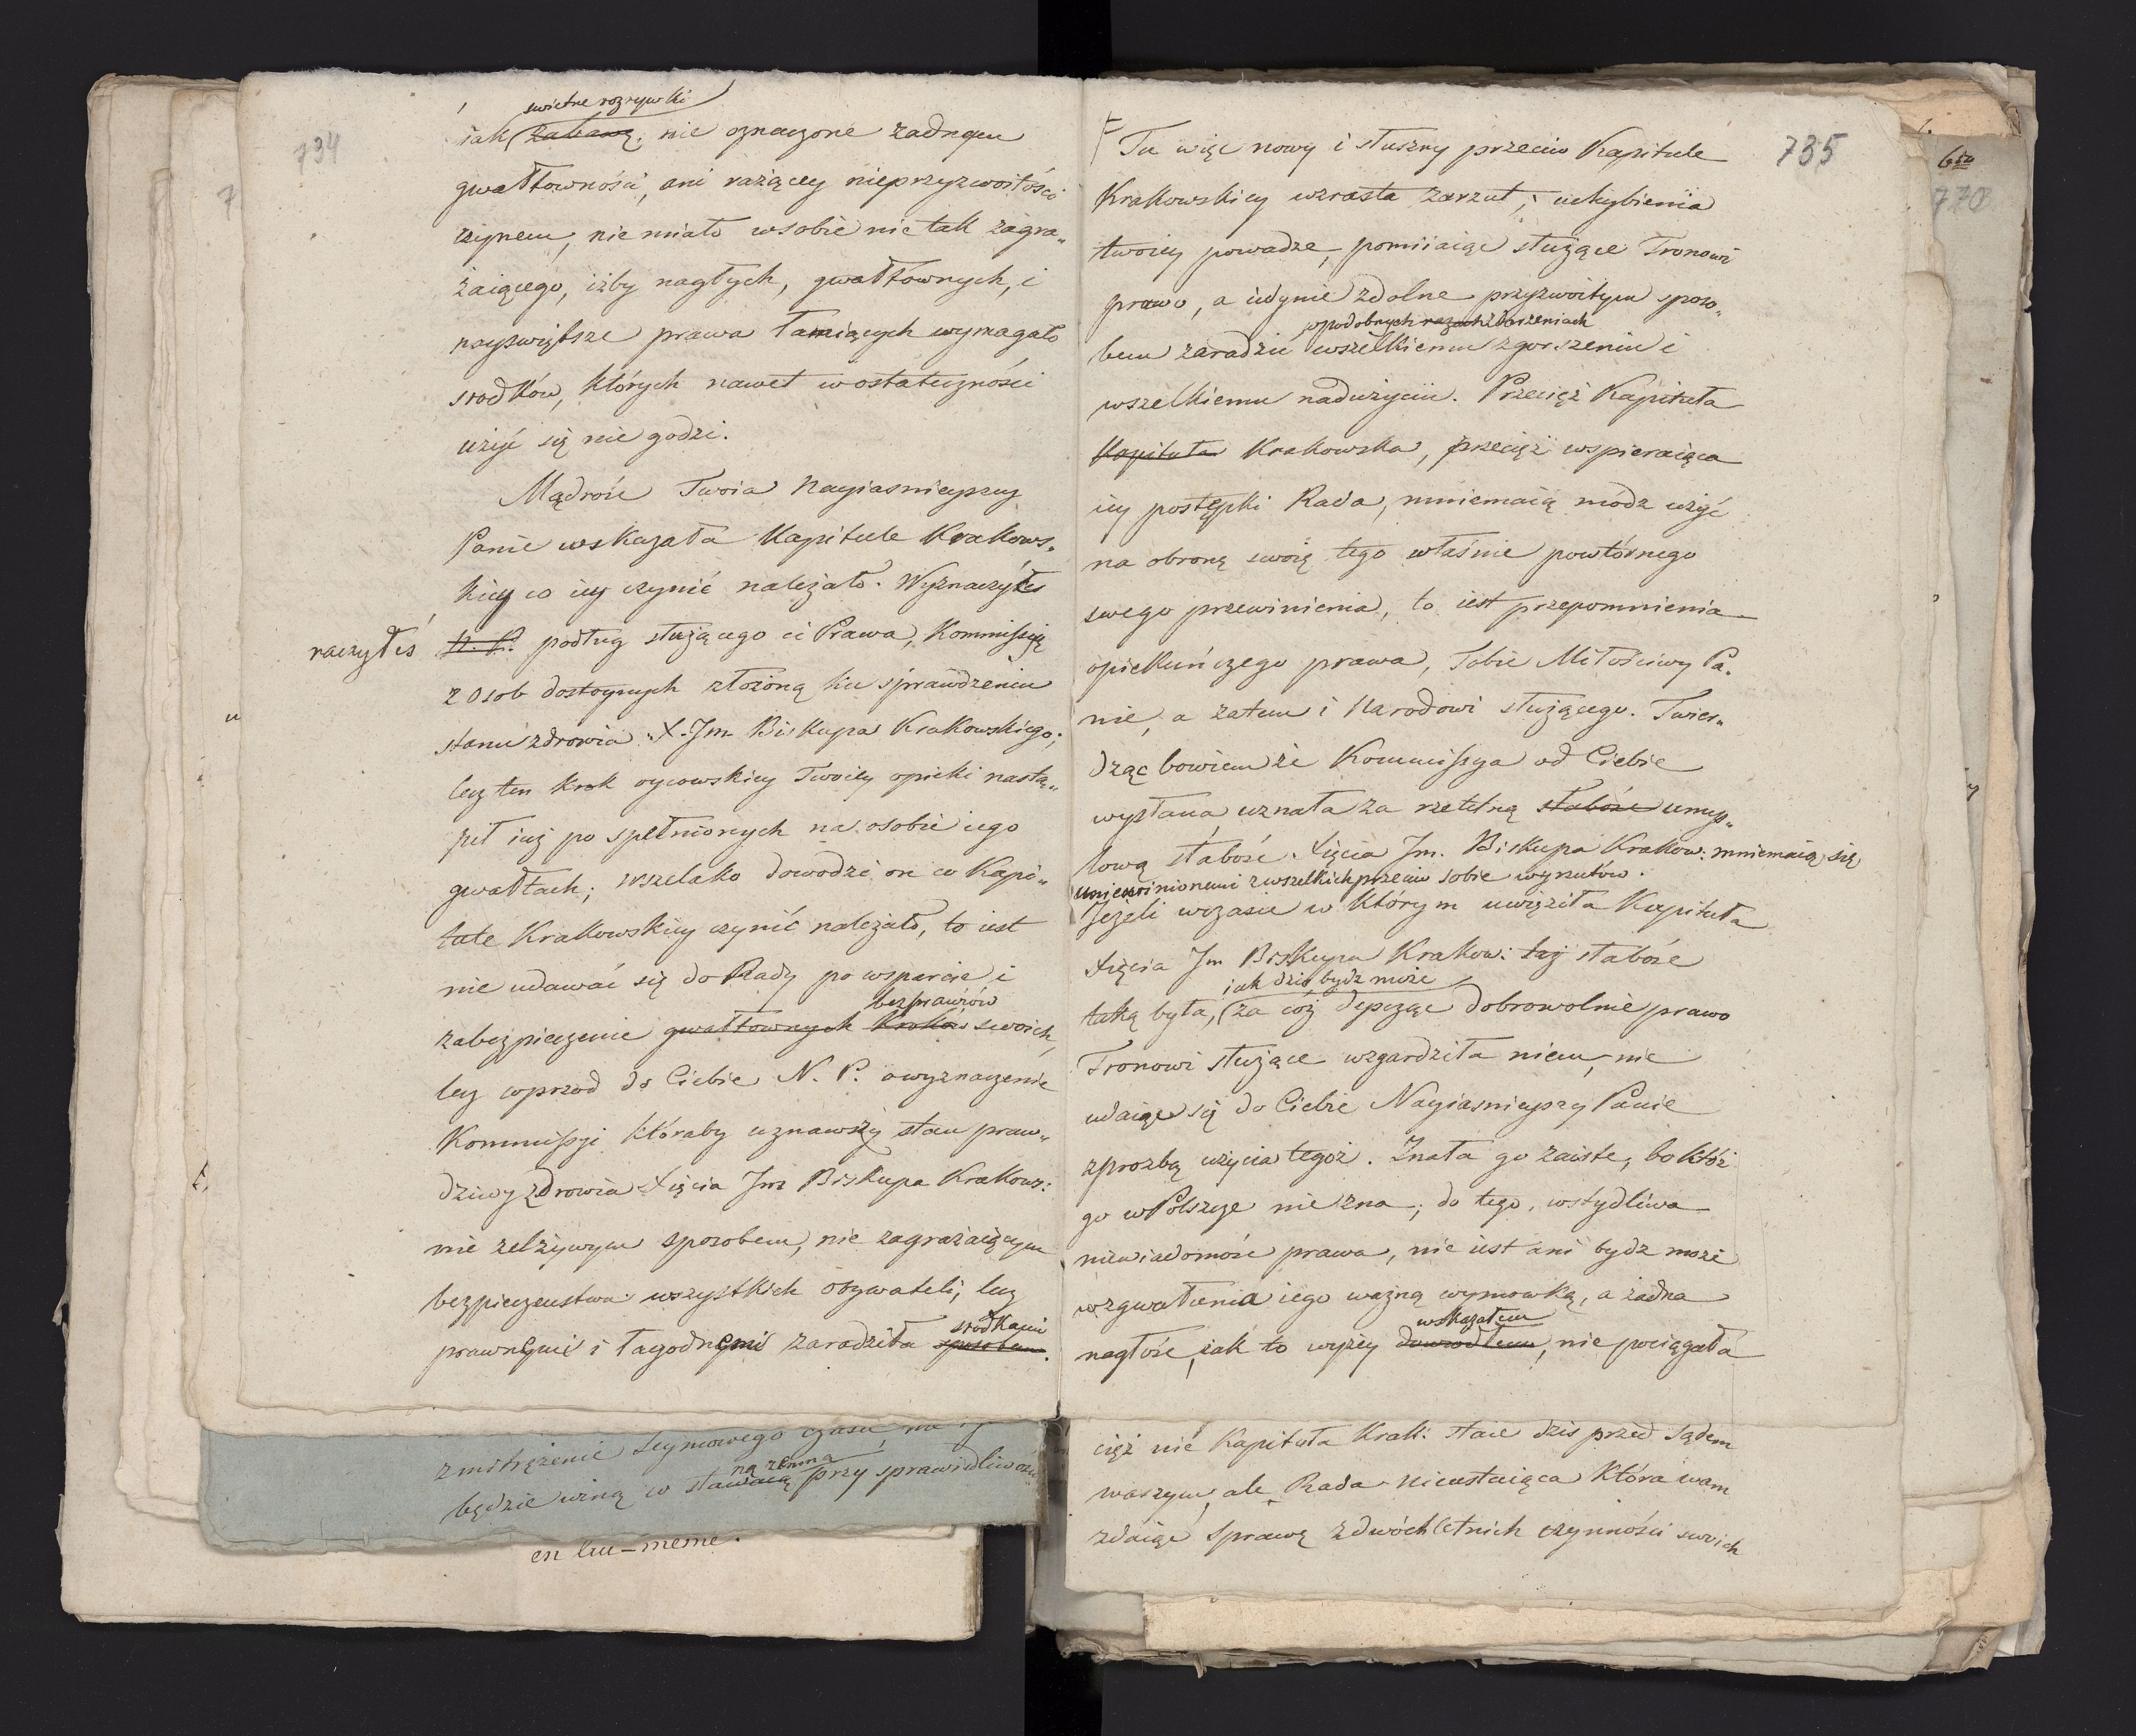 734
swietne rozrywki
iak zabawą. nie oznaczone żadnym
gwałtowności, ani rażącey nieprzyzwoitości
czynem, nie miało wsobie nic tak zagra„
żaiącego, iżby nagłych, gwałtownych, i
nayświętsze prawa łamiących wymagało
srodków, których nawet w ostateczności
użyć się nie godzi.
Mądrość Twoia Nayiasnieyszy
Panie wskazała Kapitule Krakows„
kiey co iey czynić należało. Wyznaczyłes
raczyłeś N. P. podług służącego ci Prawa, Kommissyą
z Osob dostoynych złożoną ku sprawdzeniu
stanu zdrowia X. Jm Biskupa Krakowskiego;
lecz ten krok oycowskiey Twoiey opieki nastą„
pił iuż po spełnionych na osobie iego
gwałtach; wszelako dowodzi on co Kapi„
tule Krakowskiey czynić należało, to iest
nie udawać się do Rady po wsparcie i
bezprawiów
zabezpieczenie gwałtownych kroków swoich,
lecz wprzod do Ciebie N. P. o wyznaczenie
Kommissyi któraby uznawszy stan praw„
dziwy zdrowia Xięcia Jm Biskupa Krakows:
nie zelżywym sposobem, nie zagrażaiącym
bezpieczeustwu wszystkich obywateli, lecz
srodkami
prawnymi i łagodnymi zaradziła sposobem.
zmitrężenie Seymowego czasu na
na zemną
będzie winą w stawaią przy sprawiedliwości
en lui-meme.
735
Tu więc nowy i słuszny przeciw Kapitule
Krakowskiey wzrasta zarzut, uchybienia
twoiey powadze, pomiiaiąc służące Tronowi
prawo, a iedynie zdolne przyzwoitym sposo„
wpodobnych razach zdarzeniach
bem zaradzić wszelkiemu zgorszeniu i
wszelkiemu nadużyciu. Przecięż Kapituła
Kapituła Krakowska, przecięż wspieraiąca
iey postępki Rada, mniemaią módz użyć
na obronę swoią tego właśnie powtórnego
swego przewinienia, to iest przepomnienia
opiekuńczego prawa, Tobie Miłościwy Pa„
nie, a zatem i Narodowi służącego. Twier„
dząc bowiem że Kommissya od Ciebie
wysłana uznała za rzetelną słabość umys„
łową słabość Xięcia Jm. Biskupa Krakow: mniemaią się
uniewinionemi zwszelkich przeciw sobie wyrzutów.
Jeżeli wczasie w którym uwięziła Kapituła
Xięcia Jm Biskupa Krakow: taż słabość
iak dziś bydz może
taką była, za cóż depcząc dobrowolnie prawo
Tronowi służące wzgardziła niem, nie
udaiąc się do Ciebie Nayiasnieyszy Panie
zprozbą użycia tegoż. Znała go zaiste, bo któż
go w Polszcze nie zna; do tego, wstydliwa
niewiadomość prawa, nie iest ani bydz może
wzgwałcenia iego ważną wymowką, a żadna
wskazałem
nagłość, iak to wyżey dowiodłem, nie pociągała
cięż nie Kapituła Krak: staie dzis przed Sądem
waszym, ale Rada Nieustaiąca która wam
zdaiąc sprawę zdwóchletnich czynności swoich
6
770